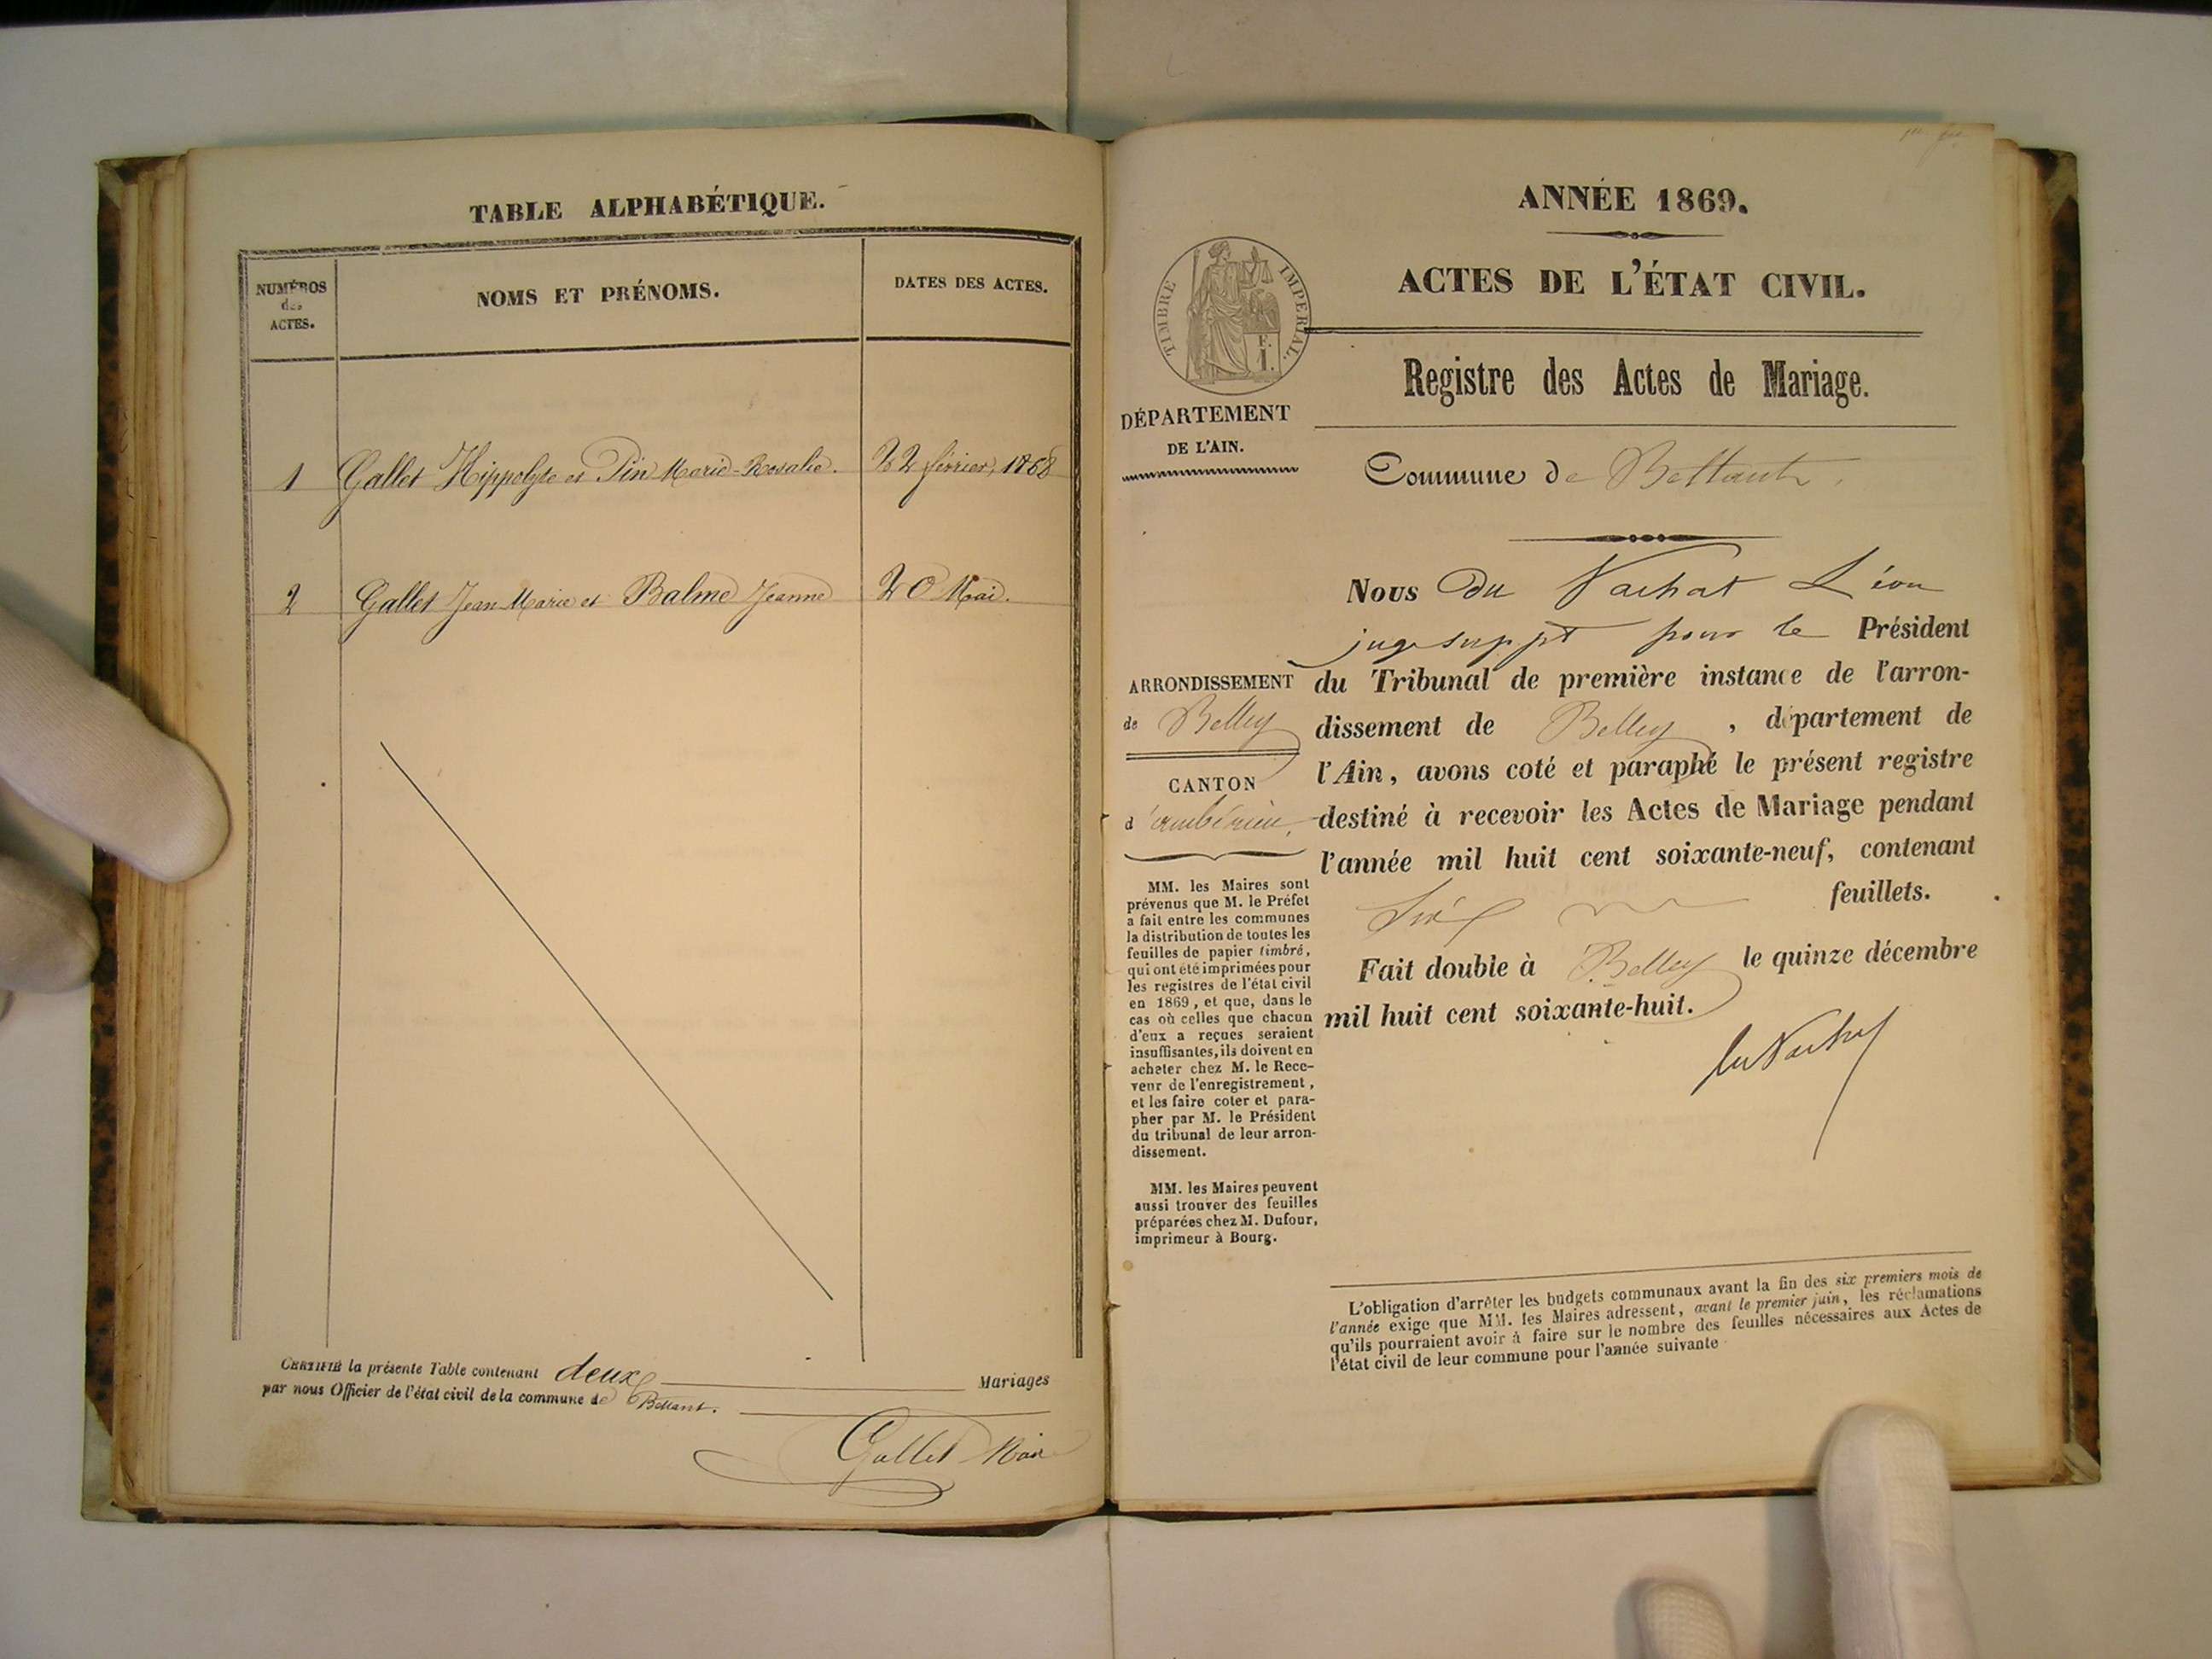 TABLE ALPHABÉTIQUE.
NUMÉROS
des
ACTES.
NOMS ET PRÉNOMS.
DATES DES ACTES.
1 Gallet Hippolyte et Pin Marie-Rosalie. 22 février, 1868
2 Gallet Jean-Marie et Balme Jeanne 20 Mai.
CERTIFIÉ la présente Table contenant deux Mariages
par nous Officier de l'état civil de la commune de Bettant.
Gallet Maire
ANNÉE 1869.
TIMBRE IMPERIAL.
F.
1.
ACTES DE L'ÉTAT CIVIL.
Registre des Actes de Mariage.
DÉPARTEMENT
DE L'AIN.
Commune de Bettant,
Nous Du Vachat Léon
juge suppt pour le Président
du Tribunal de première instance de l'arron-
dissement de Belley, département de
l'Ain, avons coté et paraphé le présent registre
destiné à recevoir les Actes de Mariage pendant
l'année mil huit cent soixante-neuf, contenant
Six feuillets.
Fait double à Belley le quinze décembre
mil huit cent soixante-huit.
du Vachat
ARRONDISSEMENT
de Belley
CANTON
d'ambérieu,
MM. les Maires sont
prévenus que M. le Préfet
a fait entre les communes
la distribution de toutes les
feuilles de papier timbré,
qui ont été imprimées pour
les registres de l'état civil
en 1869, et que, dans le
cas où celles que chacun
d'eux a reçues seraient
insuffisantes, ils doivent en
acheter chez M. le Rece-
veur de l'enregistrement,
et les faire coter et para-
pher par M. le Président
du tribunal de leur arron-
dissement.
MM. les Maires peuvent
aussi trouver des feuilles
préparées chez M. Dufour,
imprimeur à Bourg.
L'obligation d'arrêter les budgets communaux avant la fin des six premiers mois de
l'année exige que MM. les Maires adressent, avant le premier juin, les réclamations
qu'ils pourraient avoir à faire sur le nombre des feuilles nécessaires aux Actes de
l'état civil de leur commune pour l'année suivante